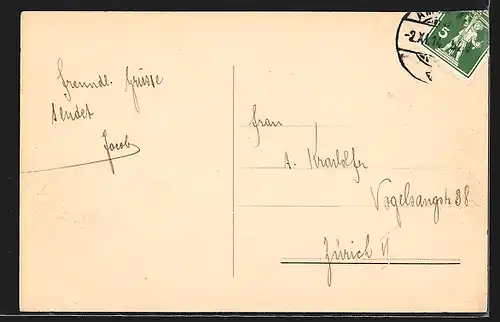 Freundl. Grüsse
sendet
Jacob
Frau
A. Kradolfer
Vogelsangstr 38
Zürich IV
5
-2.XI.